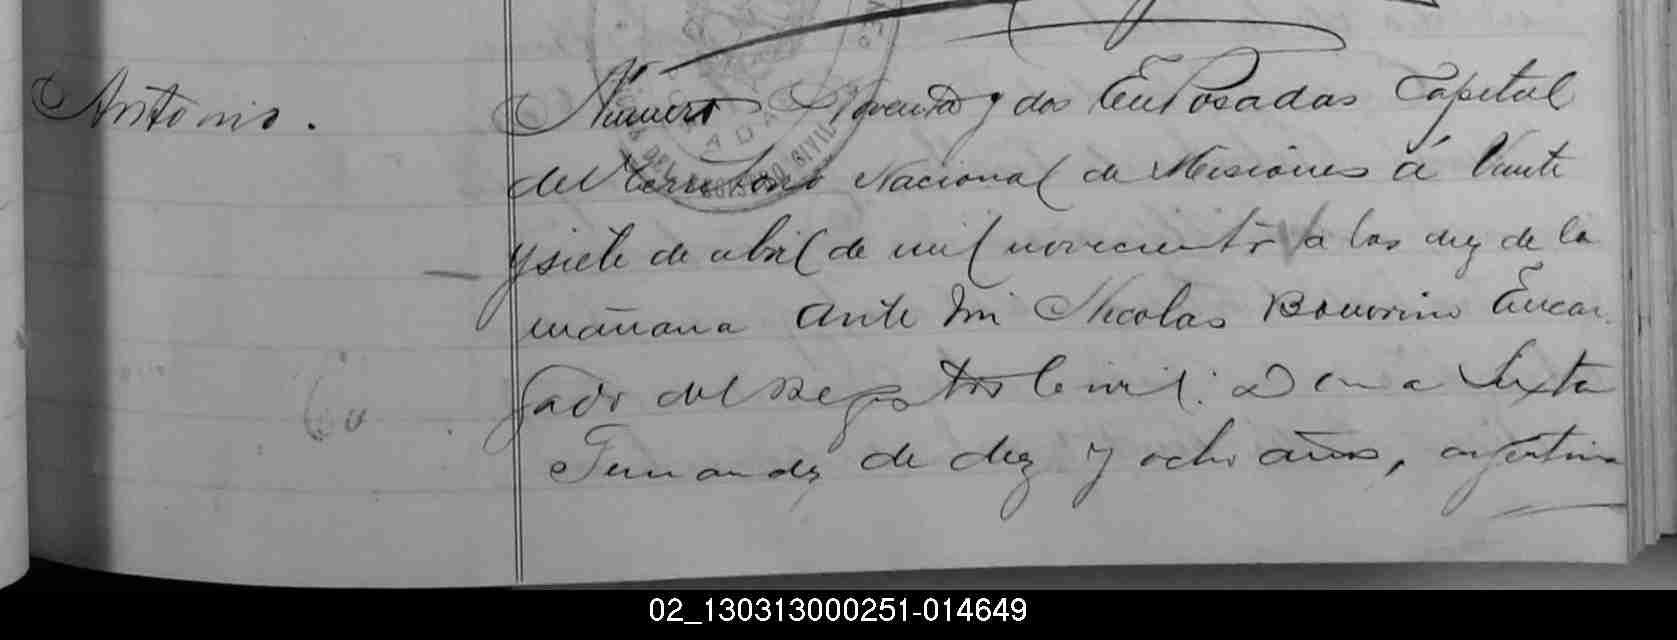 Antonio.
Número Noventa y dos En Posadas Capital
del territorio Nacional de Misiones á Veinte
y siete de abril de mil novecientos a las diez de la
mañana ante mi Nicolas Bonorino Encar
gado del Registro Civil: Dona Sixta
Fernandez de diez y ocho años, argentina
DEL REGISTRO CIVIL
02_130313000251-014649